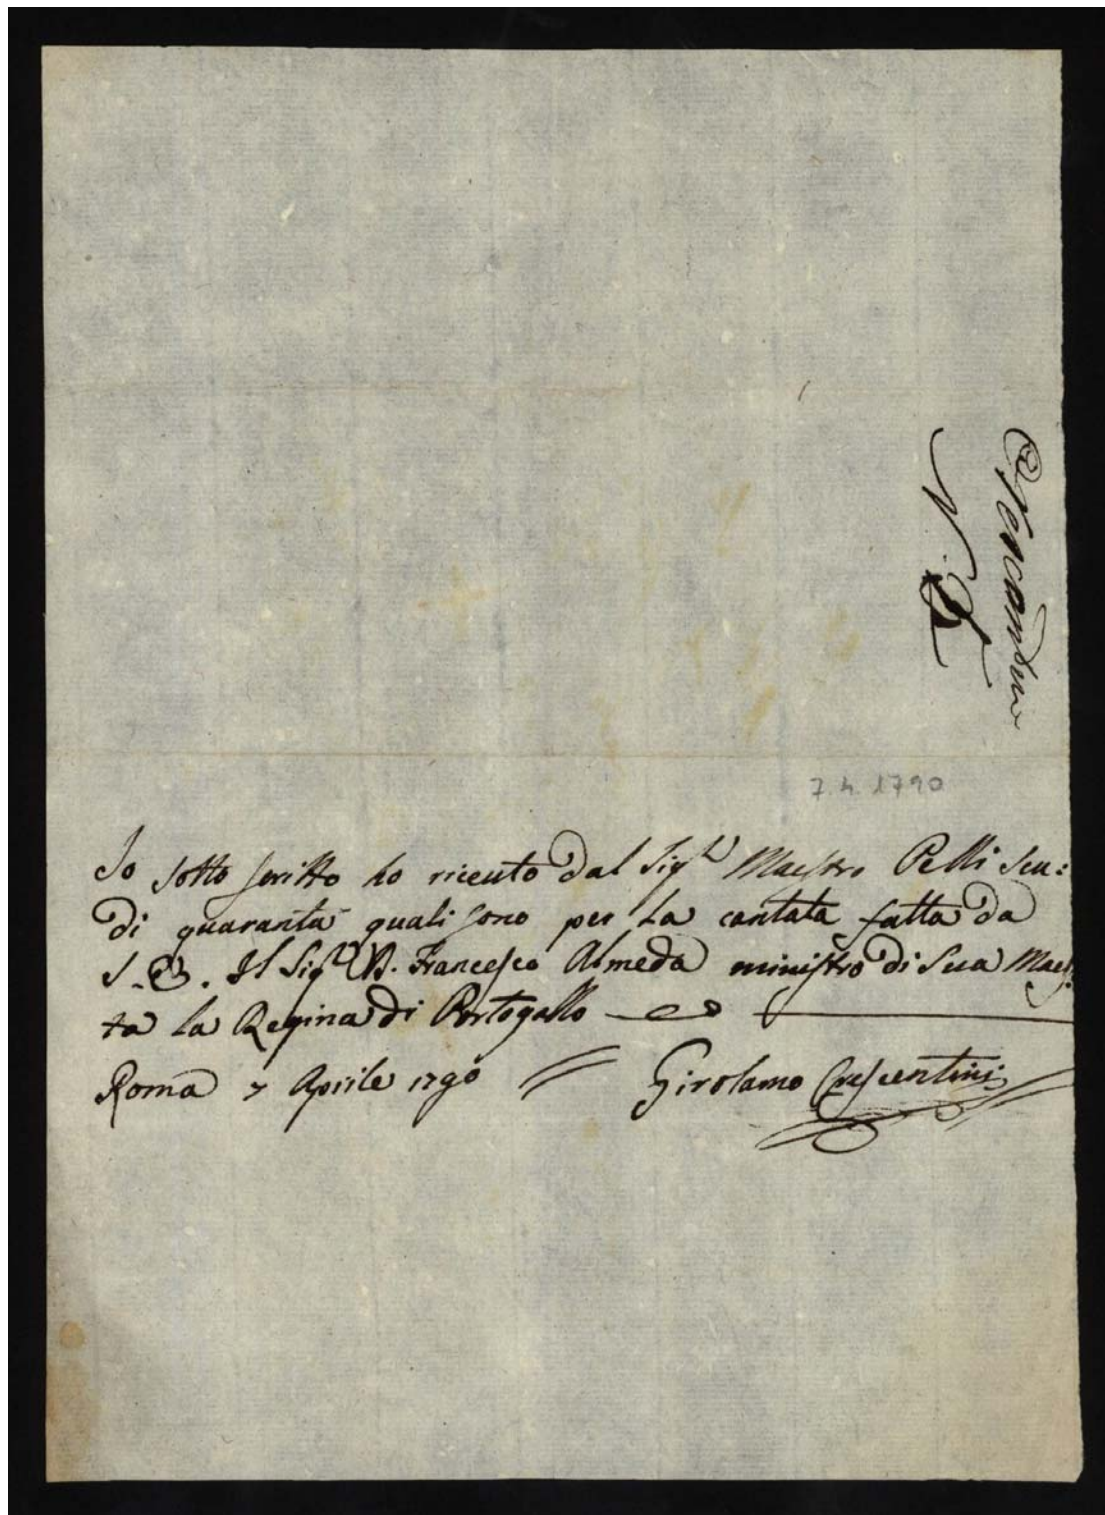 Crescentini
N. 2
7.4.1790
Io sotto scritto ho riceuto dal Sig.r Maestro Pelli scu:
di quaranta quali sono per la cantata fatta da
S. E. Il Sig.r D. Francesco Almeda ministro di Sua Maes:
ta la Regina di Portogallo
Roma 7 Aprile 1790 Girolamo Crescentini